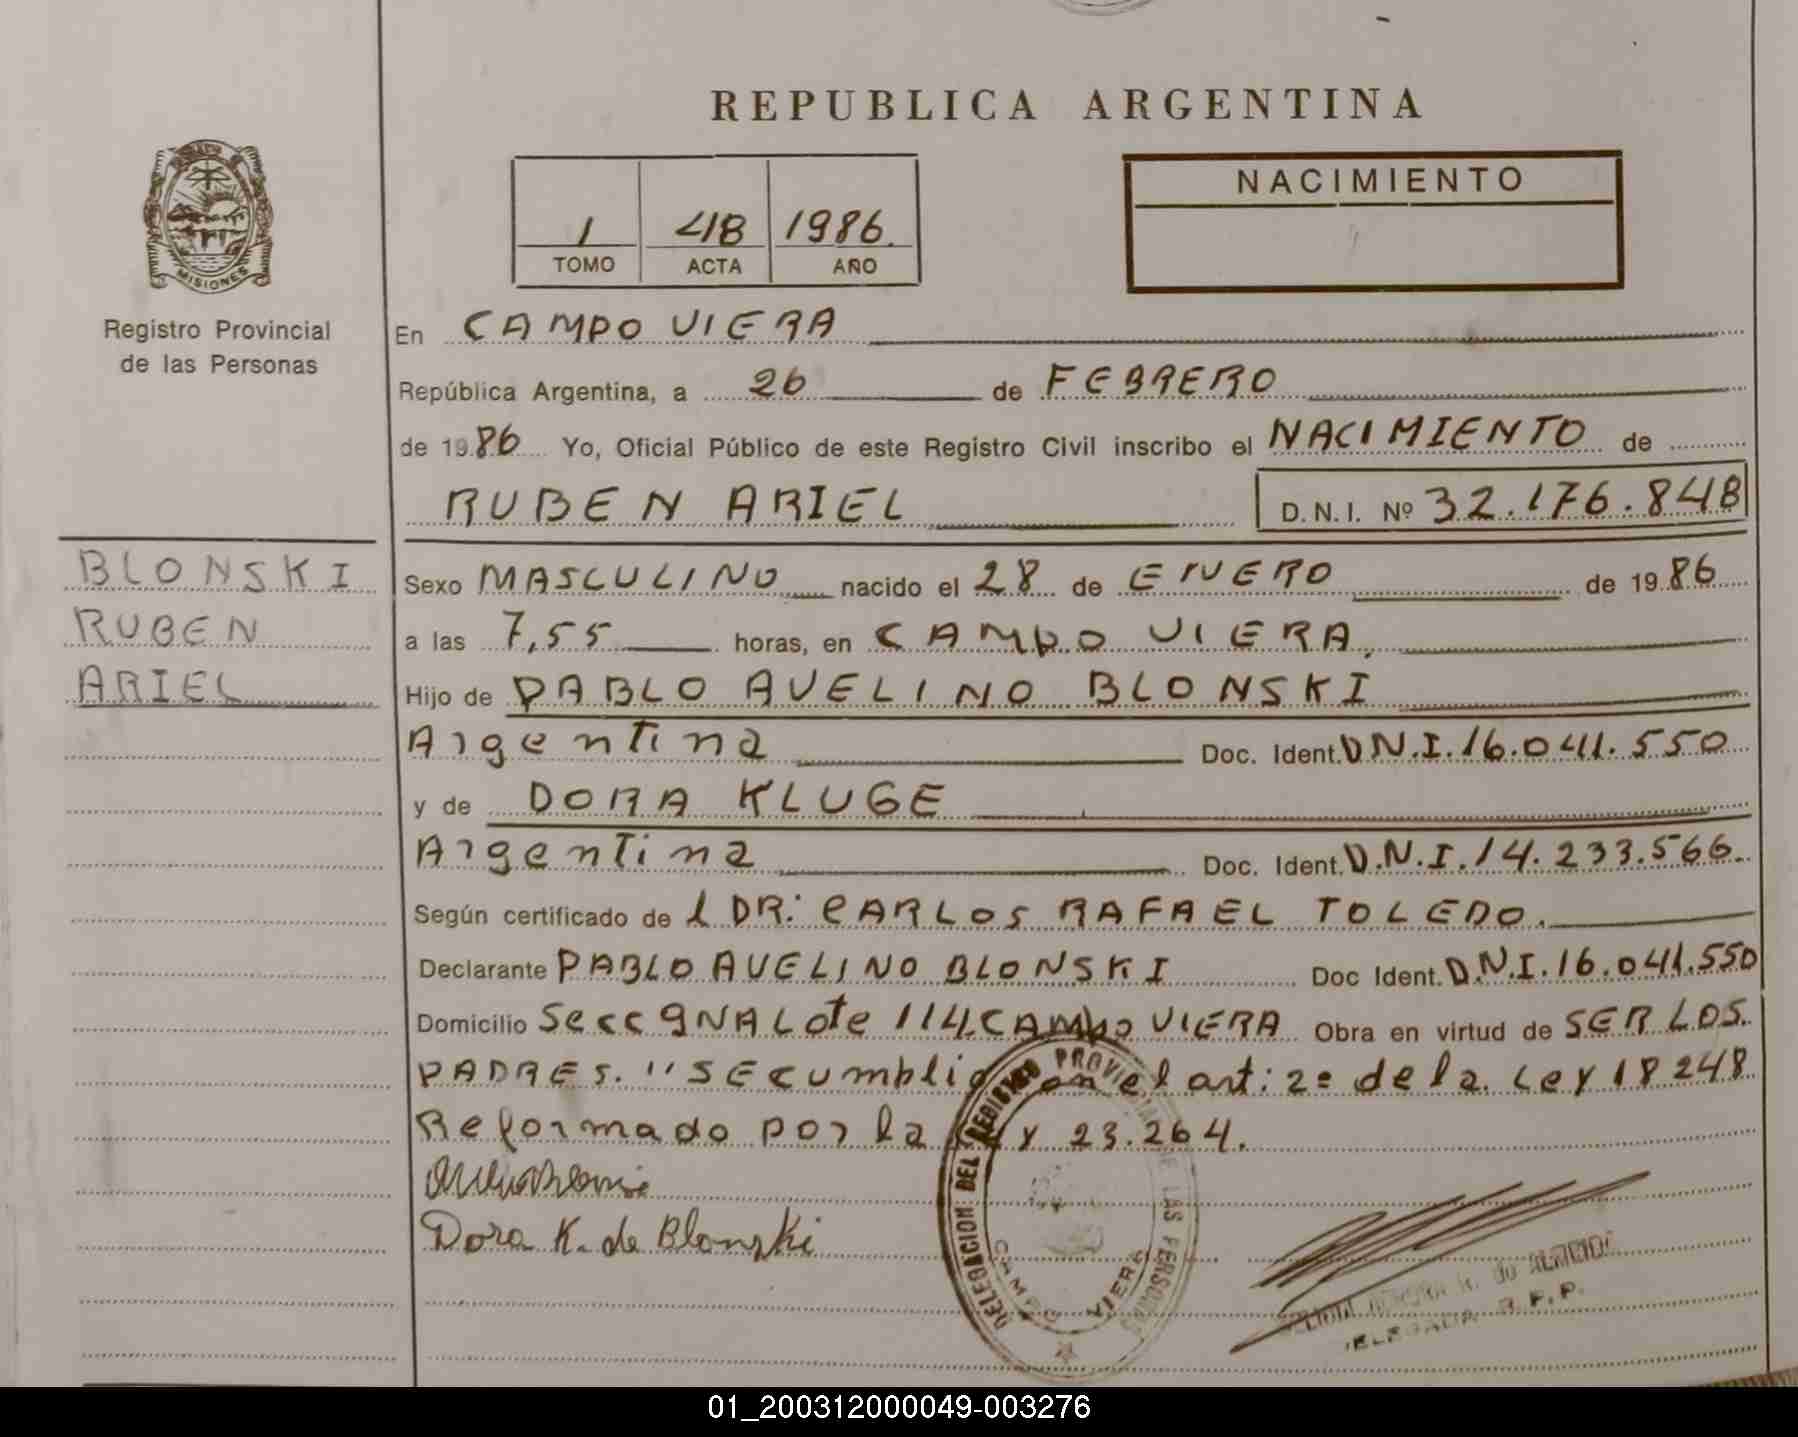 REPUBLICA ARGENTINA
NACIMIENTO
1 48 1986
TOMO ACTA AÑO
MISIONES
Registro Provincial
de las Personas
En CAMPO VIERA
República Argentina, a 26 de FEBRERO
de 1986 Yo, Oficial Público de este Registro Civil inscribo el NACIMIENTO de
RUBEN ARIEL D.N.I. Nº 32.176.848
BLONSKI
RUBEN
ARIEL
Sexo MASCULINO nacido el 28 de ENERO de 1986
a las 7,55 horas, en CAMPO VIERA,
Hijo de PABLO AVELINO BLONSKI
Argentina Doc. Ident. D.N.I. 16.041.550
y de DORA KLUGE
Argentina Doc. Ident. D.N.I. 14.233.566
Según certificado de l DR: CARLOS RAFAEL TOLEDO.
Declarante PABLO AVELINO BLONSKI Doc Ident. D.N.I. 16.041.550
Domicilio Secc 9NA Lote 114 CAMPO VIERA Obra en virtud de SER LOS
PADRES. "SE cumplio con el art: 2º de la Ley 18248
Reformado por la Ley 23.264.
Dora K. de Blonski
DELEGACION DEL REGISTRO PROVINCIAL DE LAS PERSONAS
CAMPO VIERA
de ALMEIDA
DELEGADA R.P.P.
01_200312000049-003276